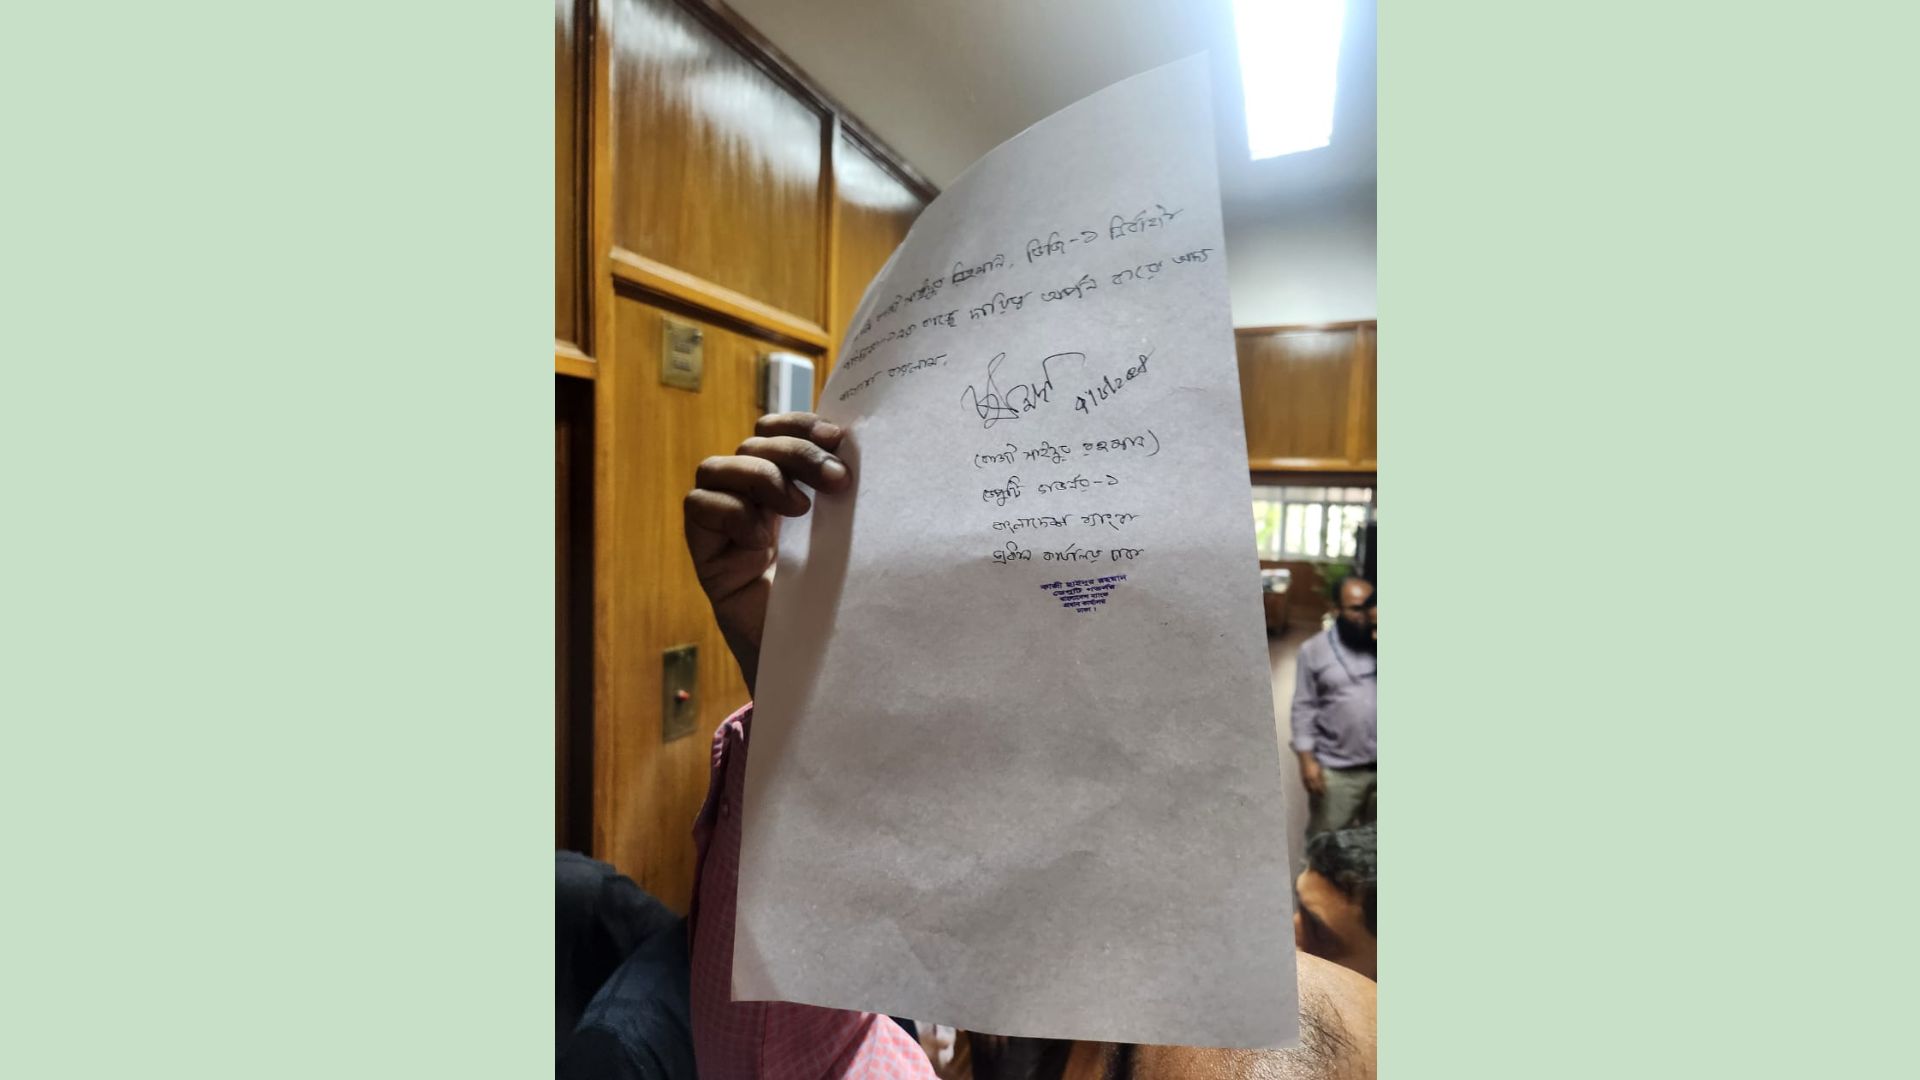 আমি কাজী ছাইদুর রহমান, ডিজি-১ নির্বাহী
পরিচালক-১ এর কাছে দায়িত্ব অর্পন করে অদ্য
করলাম।
(কাজী ছাইদুর রহমান)
ডেপুটি গভর্নর-১
বাংলাদেশ ব্যাংক
প্রধান কার্যালয় ঢাকা
কাজী ছাইদুর রহমান
ডেপুটি গভর্নর
বাংলাদেশ ব্যাংক
প্রধান কার্যালয়
ঢাকা।